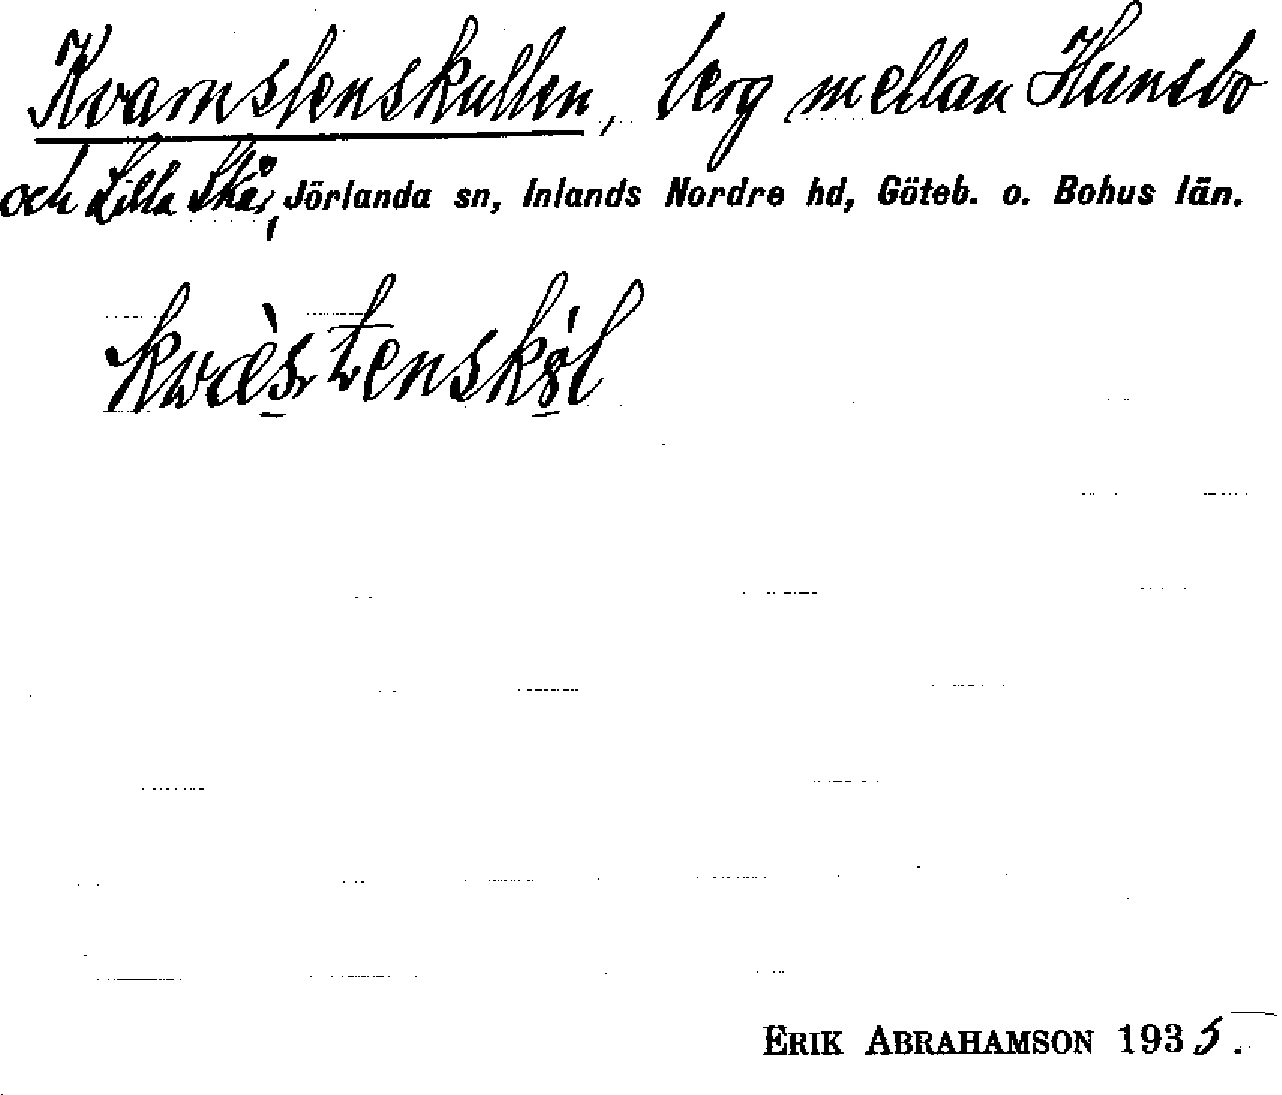 Kvarnstenskullen, berg mellan Hunsbo
och Lilla Skår, Jörlanda sn, Inlands Nordre hd, Göteb. o. Bohus län.
ERIK ABRAHAMSON 1935.